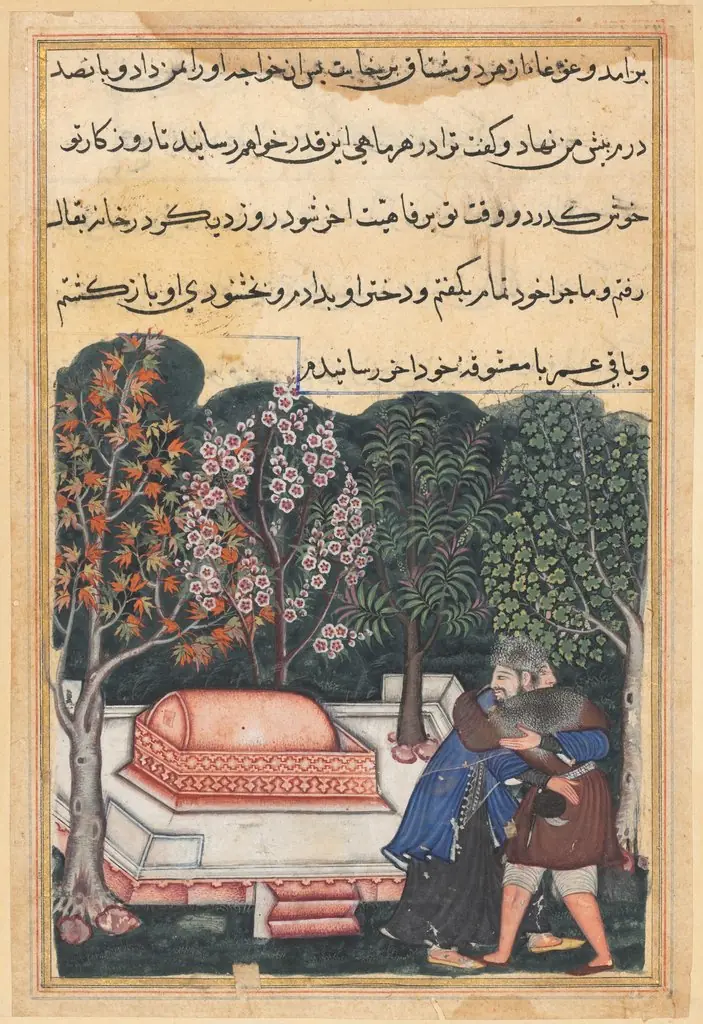 برامد و غوغا از هر دو مشتاق برخاست پس ان خواجه او را بمن داد و پانصد
درم پیش من نهاد و کفت ترا در هر ماهی این قدر خواهم رسانید تا روزکار تو
خوش کدرد و وقت تو برفاهیت اخر شود روز دیکر در خانه بقال
رفتم و ماجرا خود تمام بکفتم و دختر او بدادم و بخشنودی او بازکشتم
و باقی عمر با معشوقه خود اخر رسانیدم